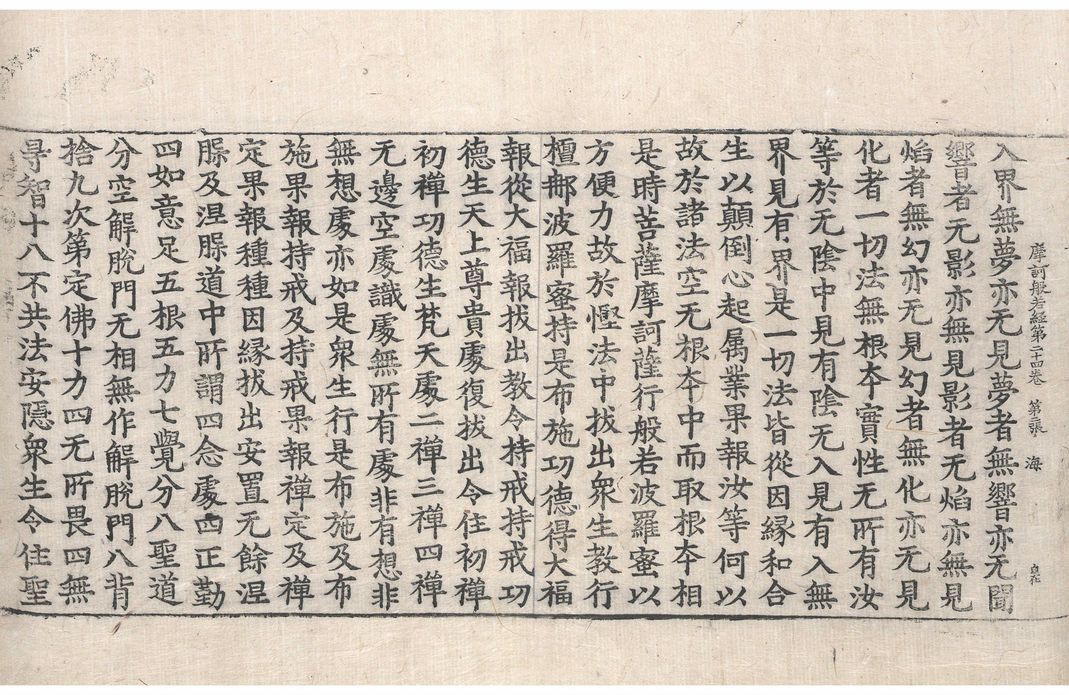 摩訶般若經第二十四卷 第三張 海
入界無夢亦无見夢者無響亦无聞
響者无影亦無見影者无焰亦無見
焰者無幻亦无見幻者無化亦无見
化者一切法無根夲實性无所有汝
等於无陰中見有陰无入見有入無
界見有界是一切法皆從因緣和合
生以顛倒心起属業果報汝等何以
故於諸法空无根夲中而取根夲相
是時菩薩摩訶薩行般若波羅蜜以
方便力故於慳法中拔出衆生教行
檀那波羅蜜持是布施功德得大福
報從大福報拔出教令持戒持戒功
德生天上尊貴處復拔出令住初禪
初禪功德生梵天處二禪三禪四禪
无邊空處識處無所有處非有想非
無想處亦如是衆生行是布施及布
施果報持戒及持戒果報禪定及禪
定果報種種因緣拔出安置无餘涅
槃及涅槃道中所謂四念處四正勤
四如意足五根五力七覺分八聖道
分空解脫門无相無作解脫門八背
捨九次第定佛十力四无所畏四無
㝵智十八不共法安隱衆生令住聖